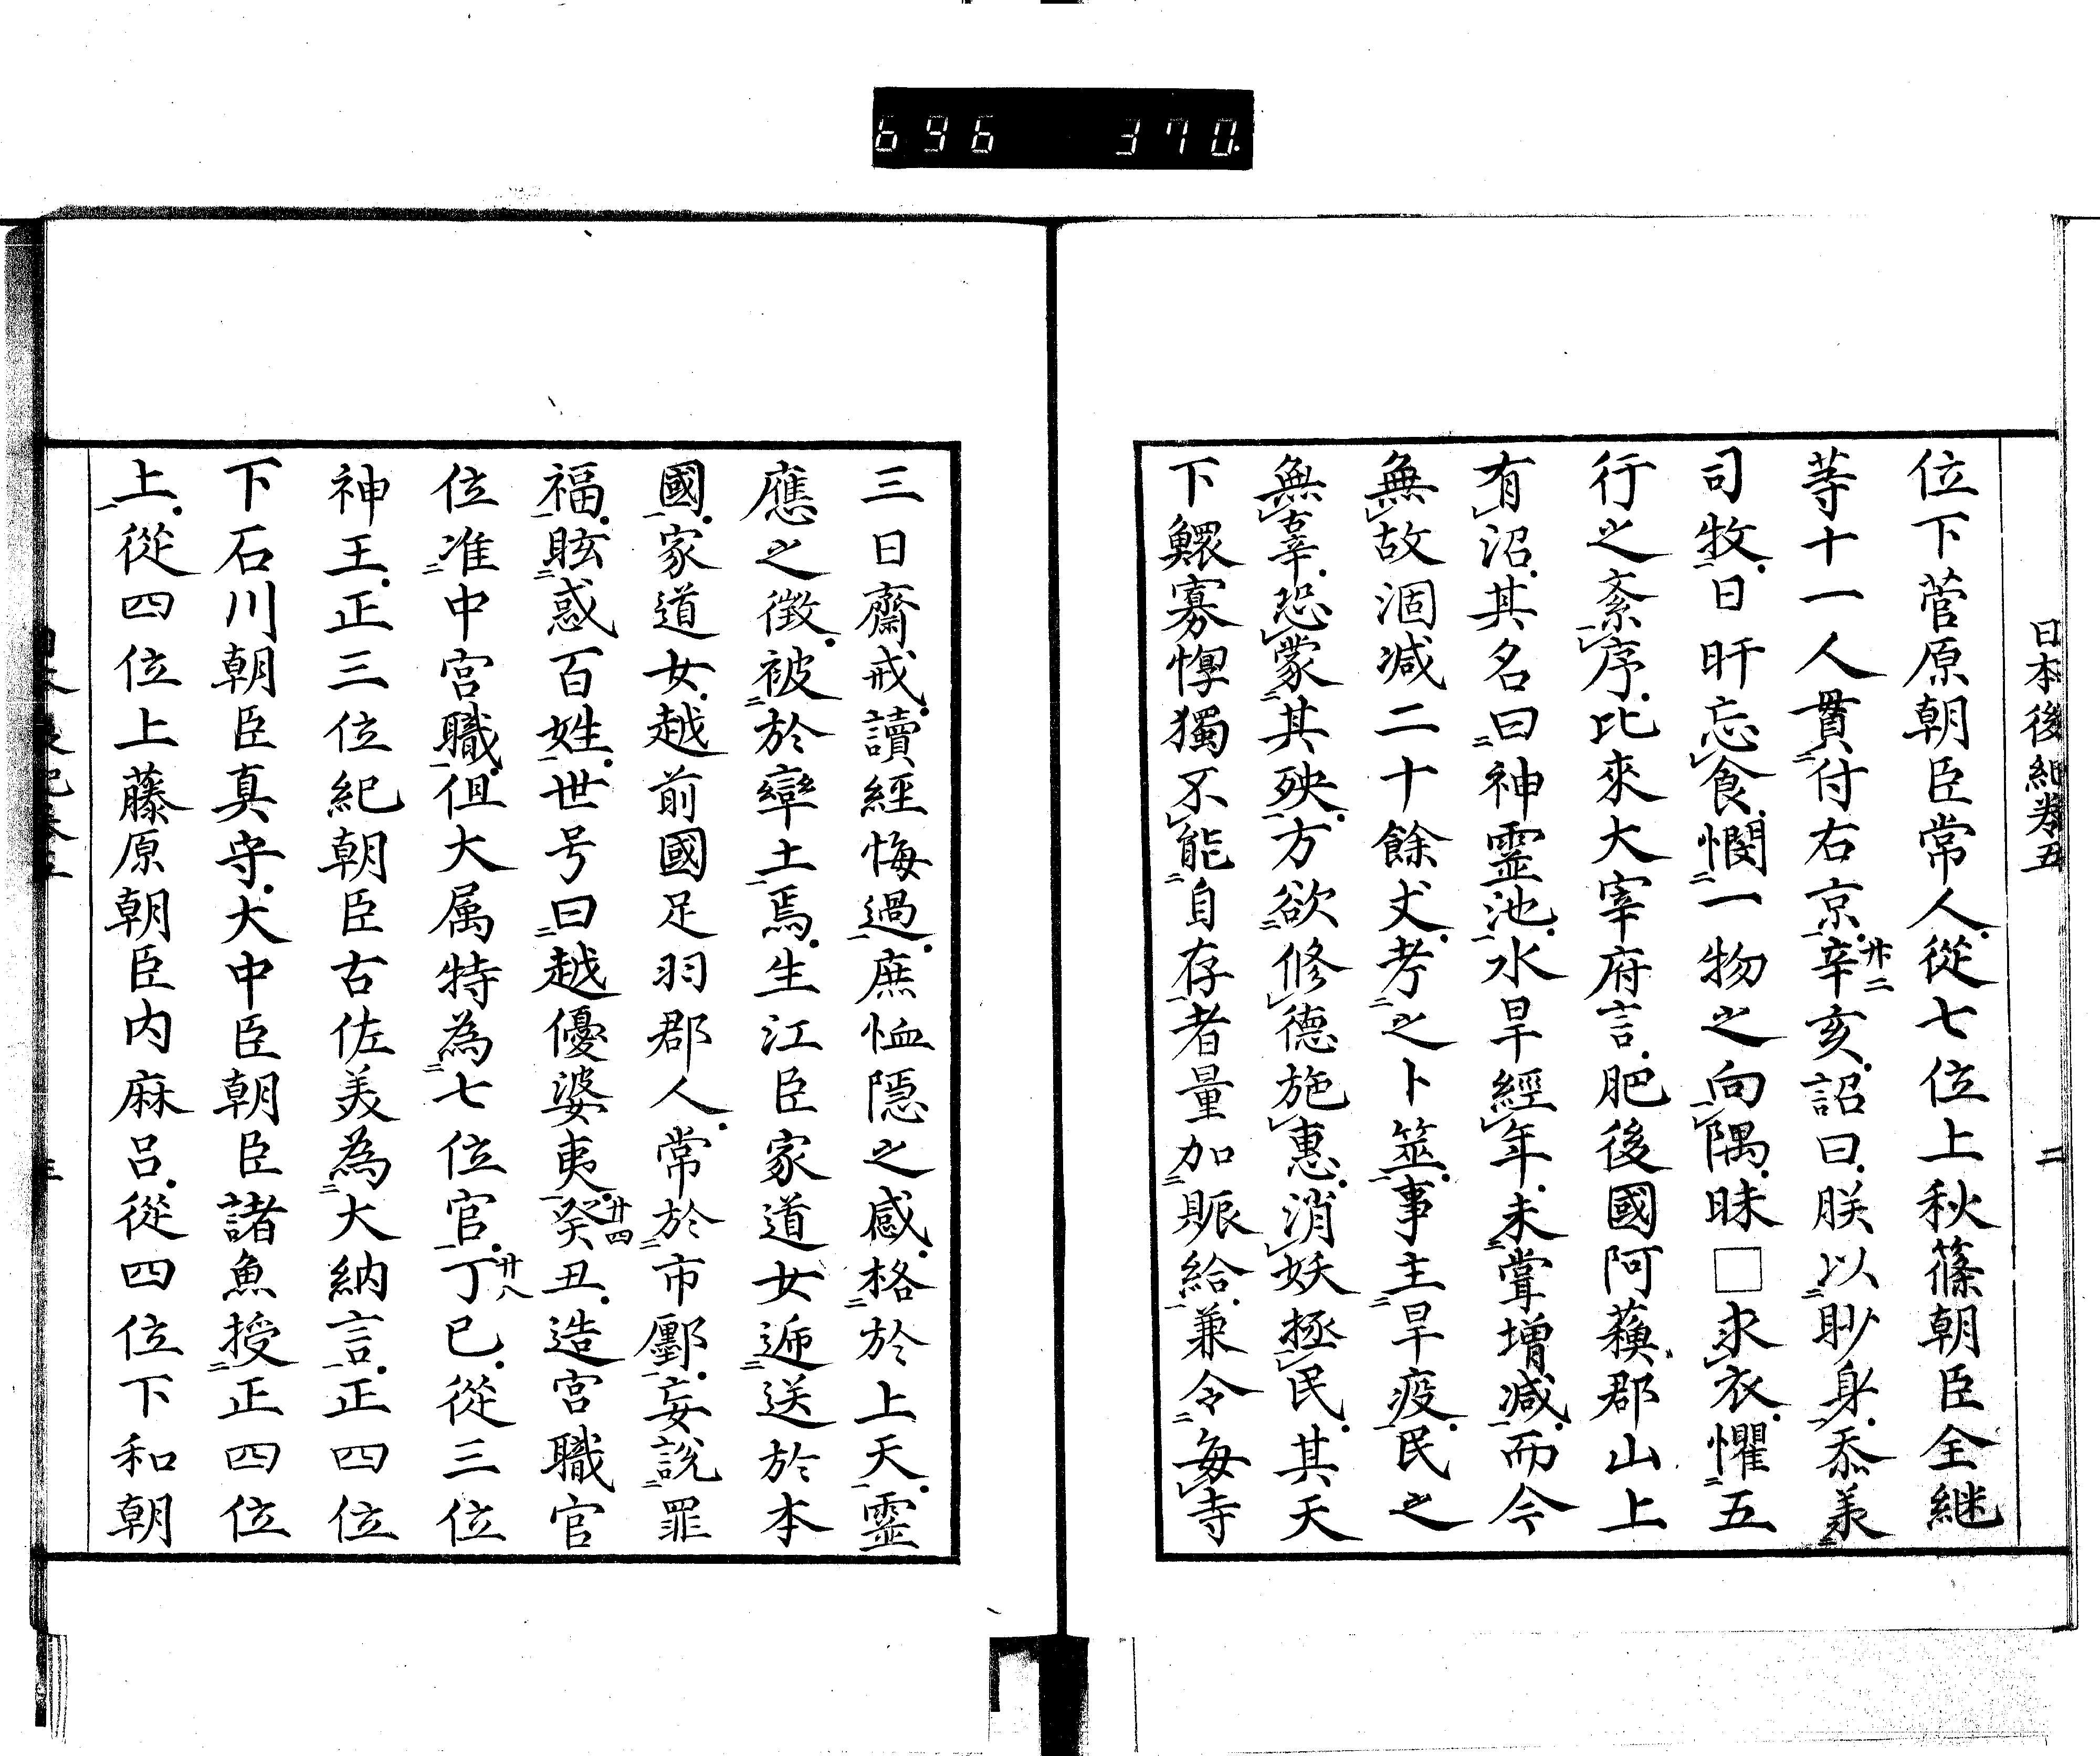 696 370
日本後紀卷五 二
位下菅原朝臣常人從七位上秋篠朝臣全継
等十一人貫付右京辛亥詔曰朕以眇身忝羕
廿二
司牧日旰忘食憫一物之向隅昧□求衣懼五
行之紊序比來大宰府言肥後國阿蘓郡山上
有沼其名曰神霊池水旱經年未甞増減而今
無故涸减二十餘丈考之卜筮事主旱疫民之
無辜恐蒙其殃方欲修德施惠消妖拯民其天
下鰥寡惸獨不能自存者量加賑給兼令每寺
三日齋戒讀經悔過庶恤隱之感格於上天霊
應之徴被於率土焉生江臣家道女逓送於本
國家道女越前國足羽郡人常於市鄽妄説罪
福眩惑百姓世号曰越優婆夷癸丑造宮職官
廿四
位准中宮職但大属特為七位官丁巳從三位
廿八
神王正三位紀朝臣古佐美為大納言正四位
下石川朝臣真守大中臣朝臣諸魚授正四位
上從四位上藤原朝臣内麻呂從四位下和朝